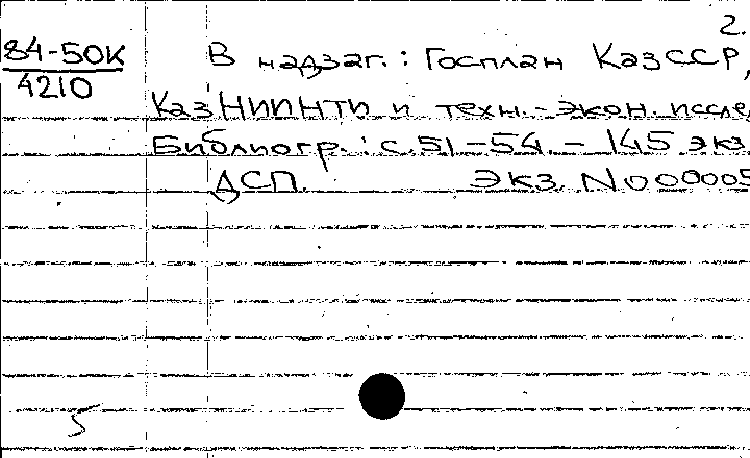 2.
84-50К
4210
В надзаг.: Госплан КазССР,
КазНИИНТИ и техн.-экон. иссле
Библиогр.: с.51-54. - 145 экз.
ДСП. Экз. N000005
5